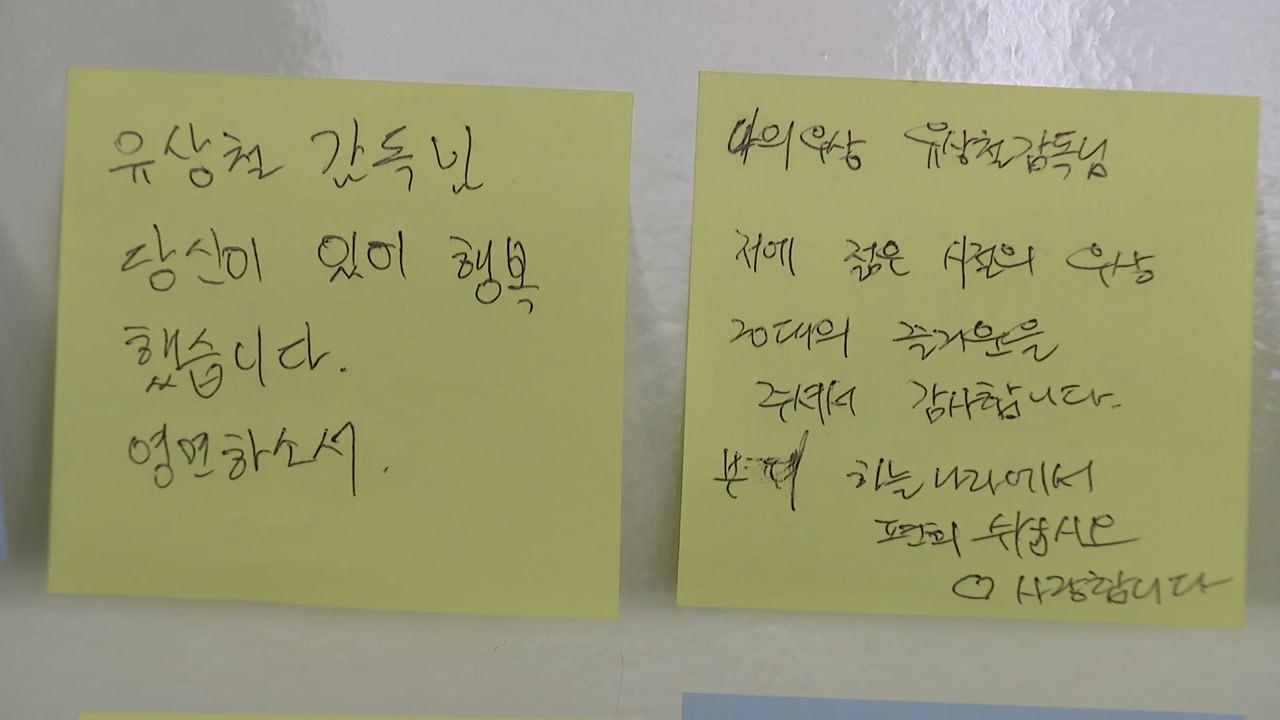 유상철 감독님
당신이 있어 행복
했습니다.
영면하소서.
나의 우상 유상철감독님
저에 젊은 시절의 우상
20대의 즐거운을
주셔서 감사합니다.
하늘나라에서
편희 쉬십시오
♡ 사랑합니다